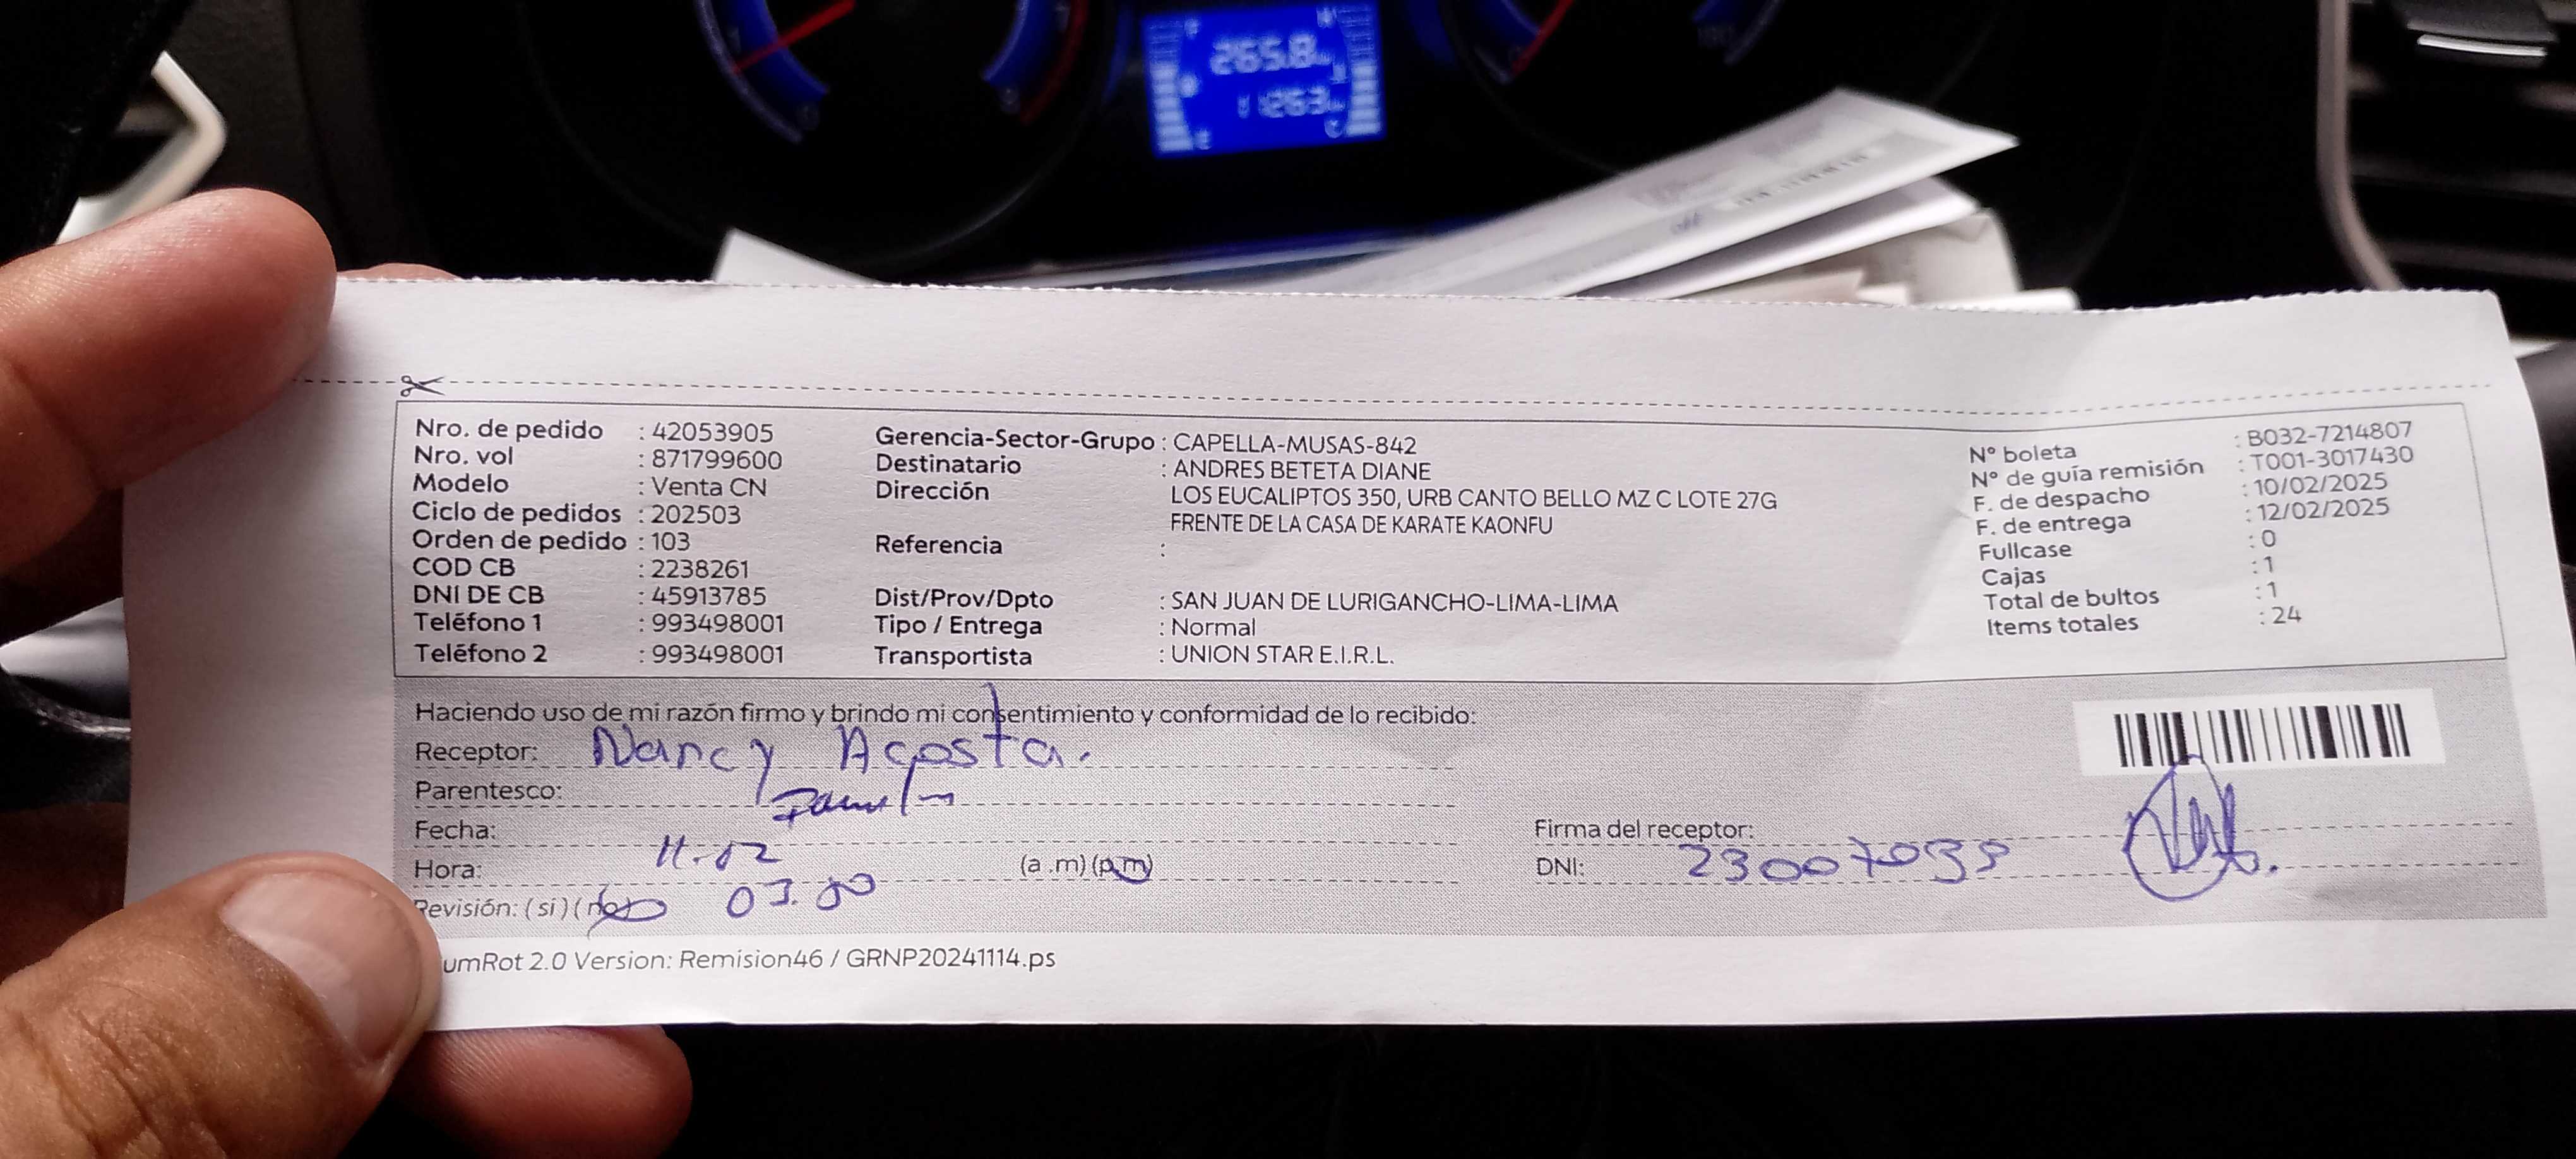 265.8
11263
Nro. de pedido : 42053905
Nro. vol : 871799600
Modelo : Venta CN
Ciclo de pedidos : 202503
Orden de pedido : 103
COD CB : 2238261
DNI DE CB : 45913785
Teléfono 1 : 993498001
Teléfono 2 : 993498001
Gerencia-Sector-Grupo : CAPELLA-MUSAS-842
Destinatario : ANDRES BETETA DIANE
Dirección LOS EUCALIPTOS 350, URB CANTO BELLO MZ C LOTE 27G
FRENTE DE LA CASA DE KARATE KAONFU
Referencia :
Dist/Prov/Dpto : SAN JUAN DE LURIGANCHO-LIMA-LIMA
Tipo / Entrega : Normal
Transportista : UNION STAR E.I.R.L.
N° boleta : B032-7214807
N° de guía remisión : T001-3017430
F. de despacho : 10/02/2025
F. de entrega : 12/02/2025
Fullcase : 0
Cajas : 1
Total de bultos : 1
Items totales : 24
Haciendo uso de mi razón firmo y brindo mi consentimiento y conformidad de lo recibido:
Receptor: Nancy Acosta.
Parentesco:
Fecha: 11.02
Hora: 03.00 (a .m) (p.m)
Revisión: ( si ) ( no )
Firma del receptor:
DNI:
umRot 2.0 Version: Remision46 / GRNP20241114.ps